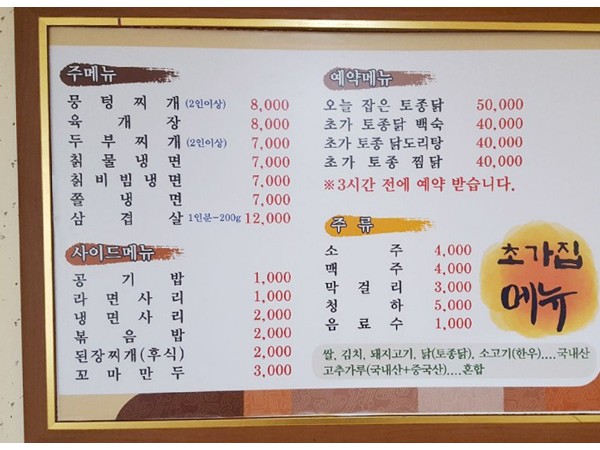 주메뉴
뭉텅찌개 (2인이상) 8,000
육개장 8,000
두부찌개 (2인이상) 7,000
칡물냉면 7,000
칡비빔냉면 7,000
쫄냉면 7,000
삼겹살 1인분-200g 12,000
사이드메뉴
공기밥 1,000
라면사리 1,000
냉면사리 2,000
볶음밥 2,000
된장찌개(후식) 2,000
꼬마만두 3,000
예약메뉴
오늘 잡은 토종닭 50,000
초가 토종닭 백숙 40,000
초가 토종 닭도리탕 40,000
초가 토종 찜닭 40,000
※3시간 전에 예약 받습니다.
주류
소주 4,000
맥주 4,000
막걸리 3,000
청하 5,000
음료수 1,000
초가집
메뉴
쌀, 김치, 돼지고기, 닭(토종닭), 소고기(한우)....국내산
고추가루(국내산+중국산)....혼합